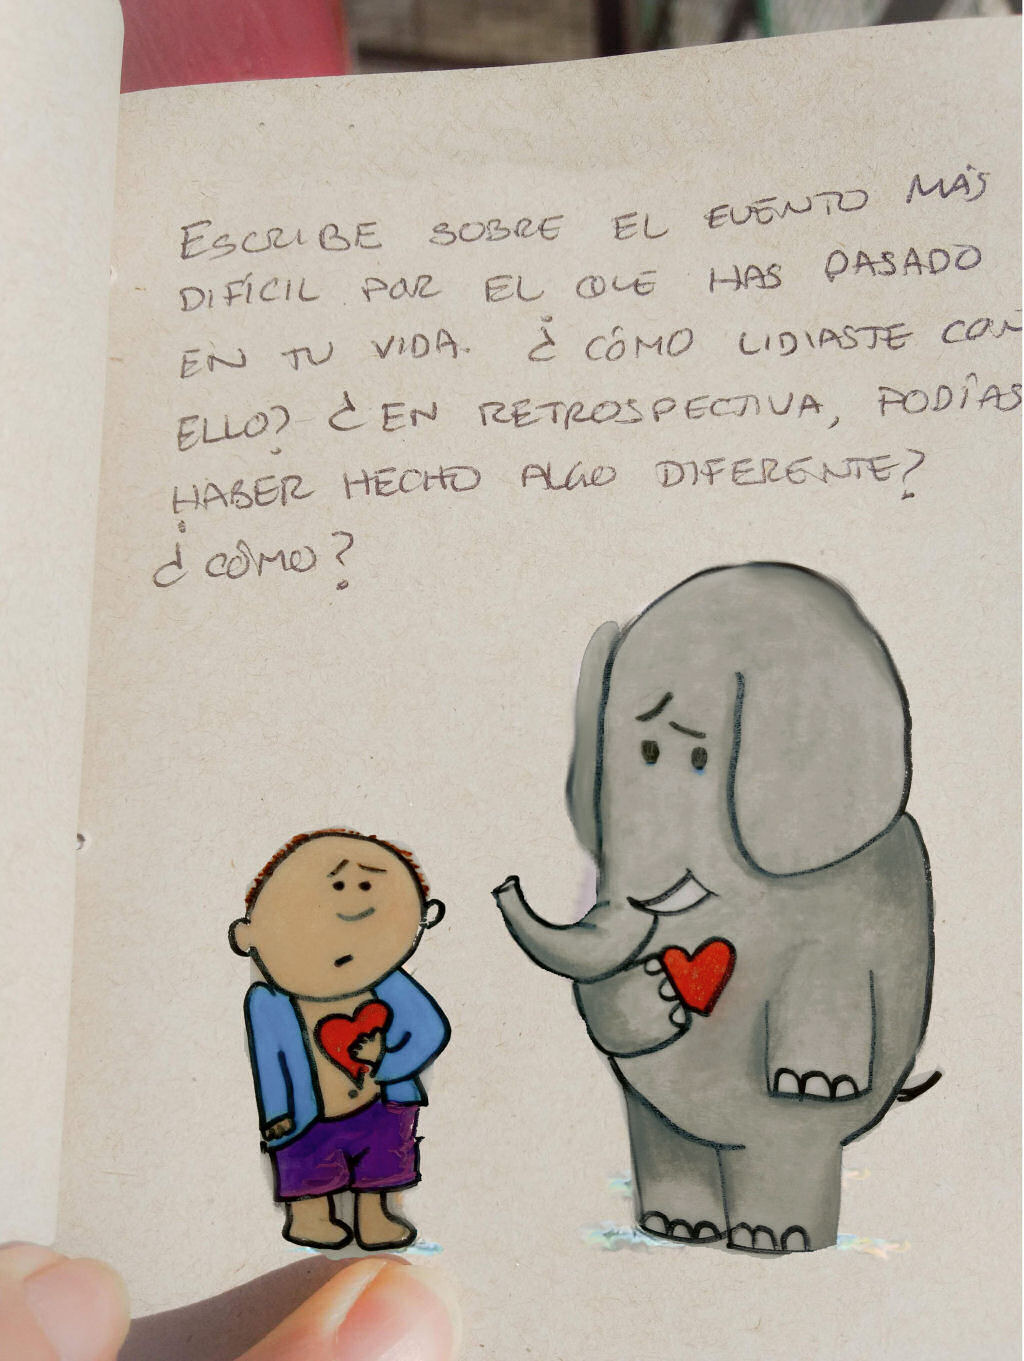 ESCRIBE SOBRE EL EVENTO MÁS
DIFÍCIL POR EL QUE HAS PASADO
EN TU VIDA. ¿CÓMO LIDIASTE CON
ELLO? ¿EN RETROSPECTIVA, PODÍAS
HABER HECHO ALGO DIFERENTE?
¿CÓMO?